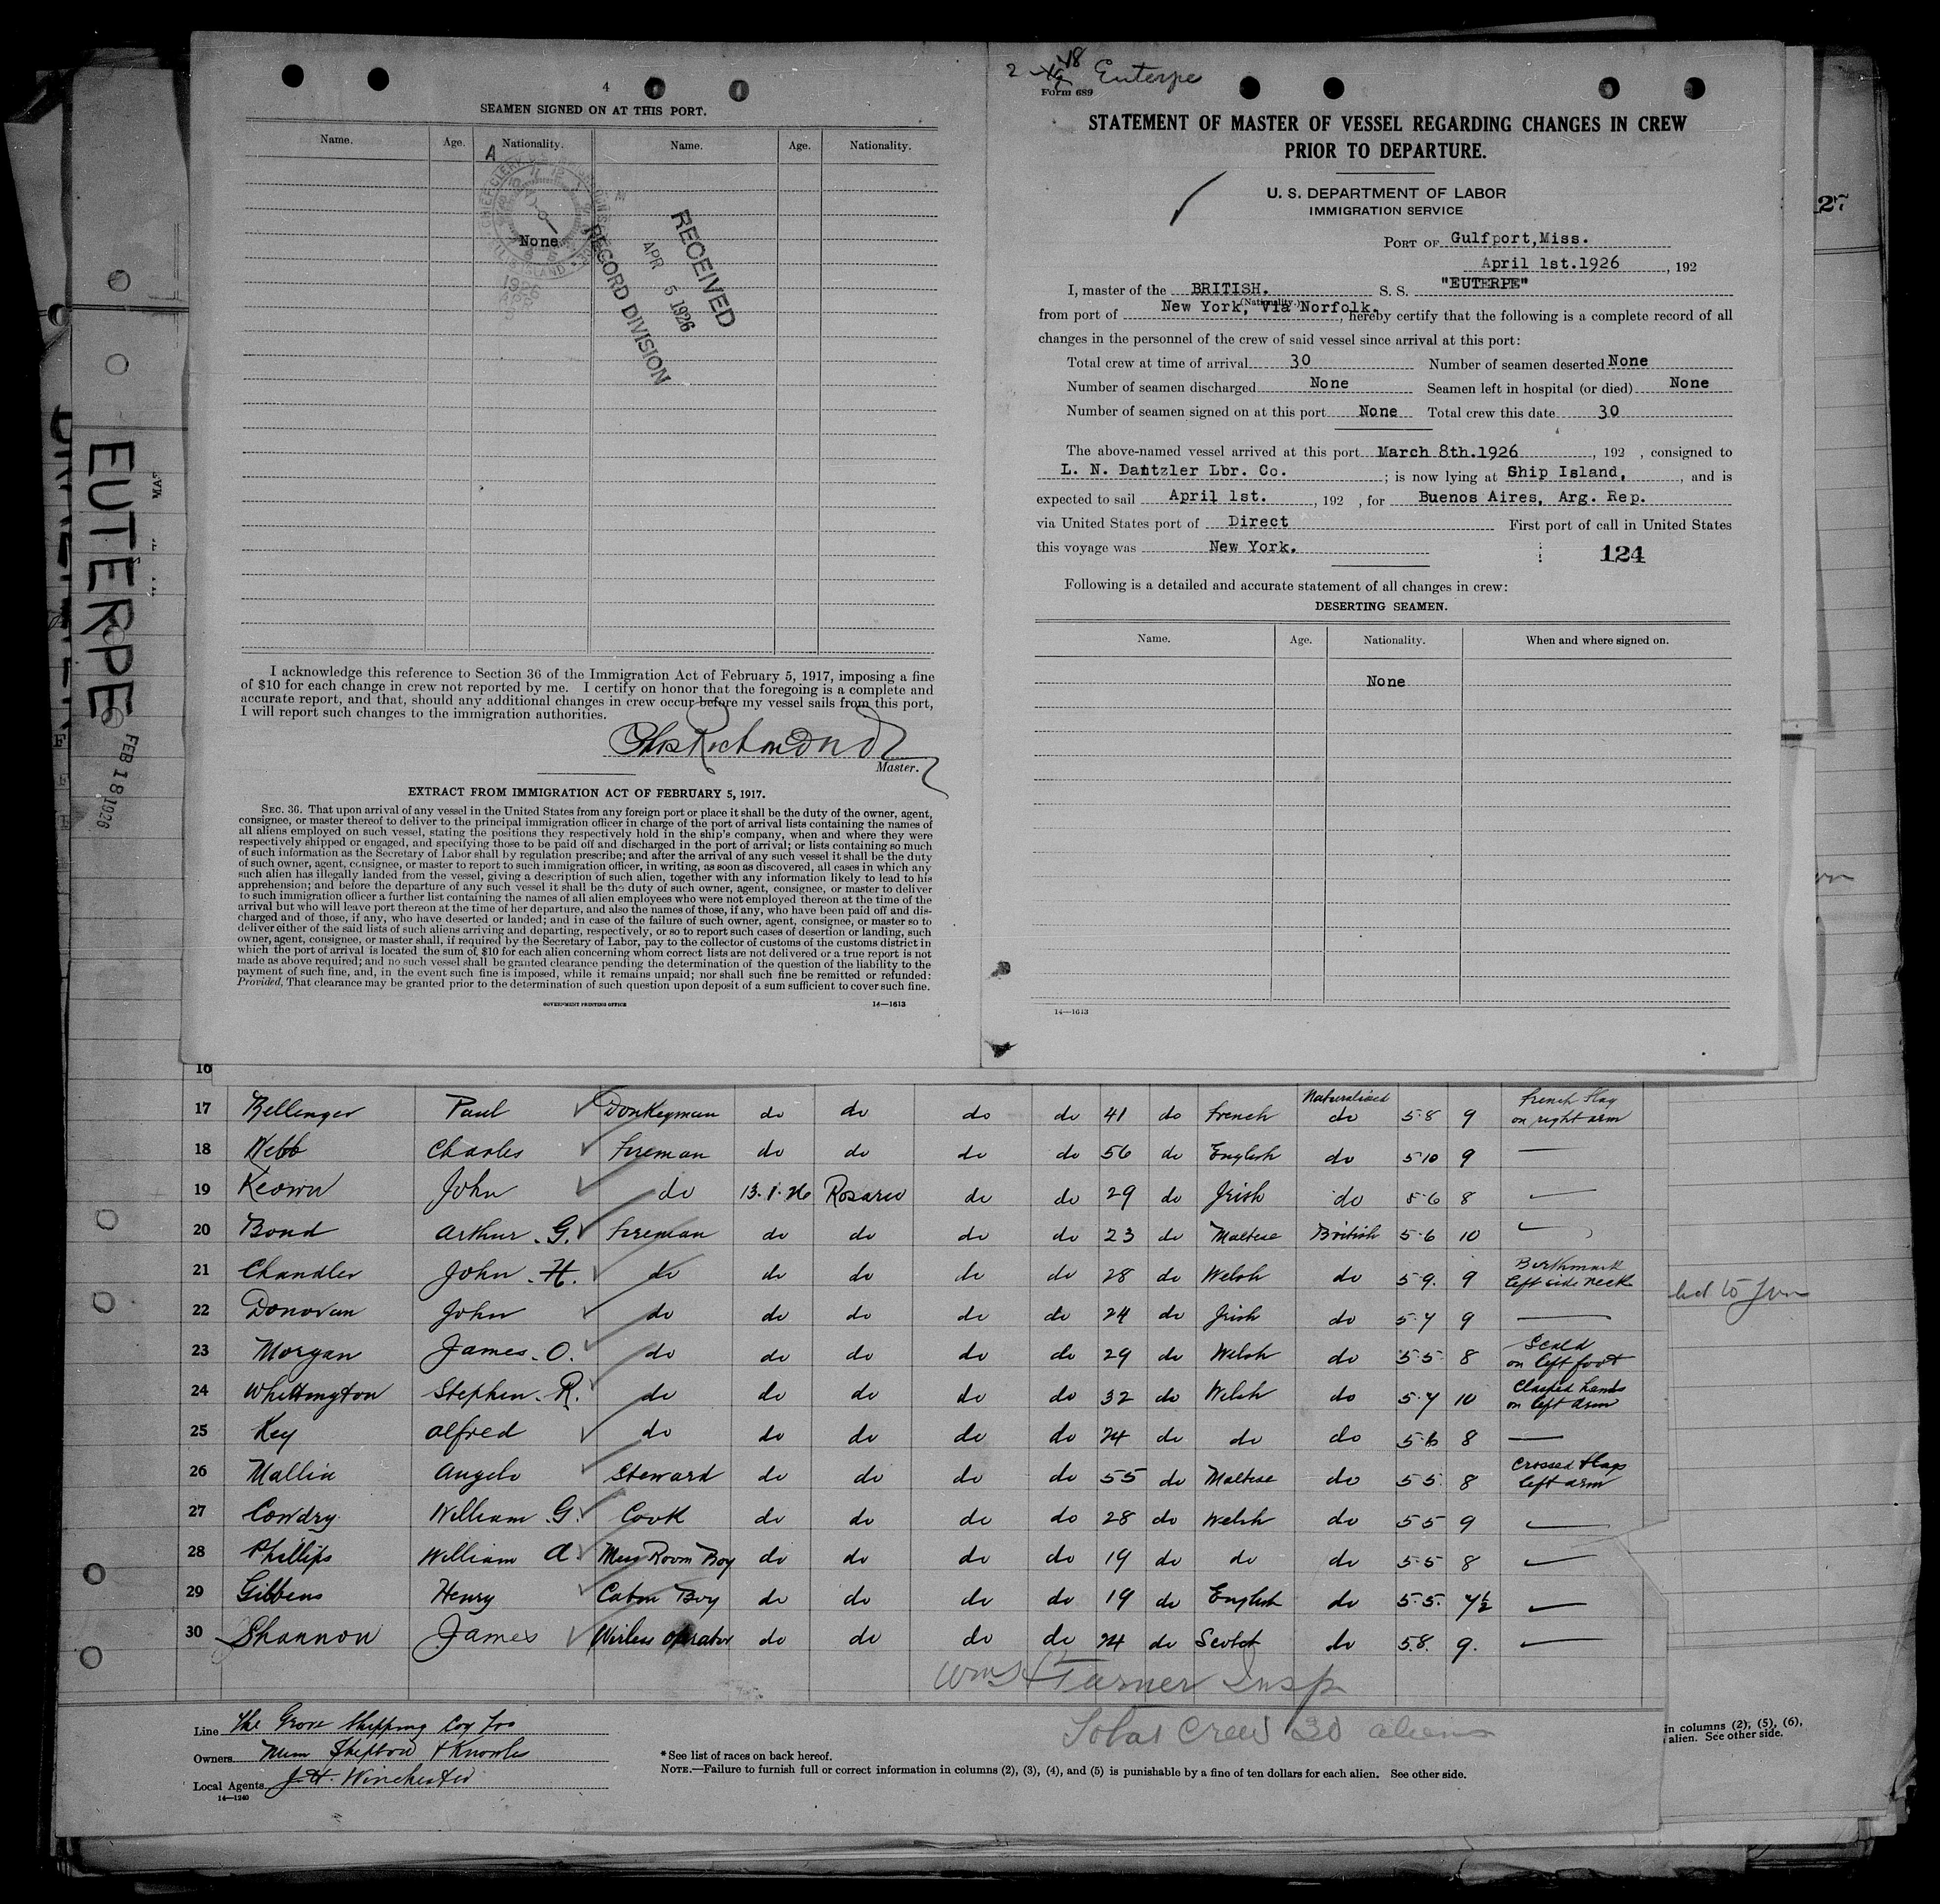 4
SEAMEN SIGNED ON AT THIS PORT.
Name. Age. Nationality. Name. Age. Nationality.
None
RECEIVED
APR 5 1926
RECORD DIVISION
I acknowledge this reference to Section 36 of the Immigration Act of February 5, 1917, imposing a fine
of $10 for each change in crew not reported by me. I certify on honor that the foregoing is a complete and
accurate report, and that, should any additional changes in crew occur before my vessel sails from this port,
I will report such changes to the immigration authorities.
Master.
EXTRACT FROM IMMIGRATION ACT OF FEBRUARY 5, 1917.
SEC. 36. That upon arrival of any vessel in the United States from any foreign port or place it shall be the duty of the owner, agent,
consignee, or master thereof to deliver to the principal immigration officer in charge of the port of arrival lists containing the names of
all aliens employed on such vessel, stating the positions they respectively hold in the ship's company, when and where they were
respectively shipped or engaged, and specifying those to be paid off and discharged in the port of arrival; or lists containing so much
of such information as the Secretary of Labor shall by regulation prescribe; and after the arrival of any such vessel it shall be the duty
of such owner, agent, consignee, or master to report to such immigration officer, in writing, as soon as discovered, all cases in which any
such alien has illegally landed from the vessel, giving a description of such alien, together with any information likely to lead to his
apprehension; and before the departure of any such vessel it shall be the duty of such owner, agent, consignee, or master to deliver
to such immigration officer a further list containing the names of all alien employees who were not employed thereon at the time of the
arrival but who will leave port thereon at the time of her departure, and also the names of those, if any, who have been paid off and dis-
charged and of those, if any, who have deserted or landed; and in case of the failure of such owner, agent, consignee, or master so to
deliver either of the said lists of such aliens arriving and departing, respectively, or so to report such cases of desertion or landing, such
owner, agent, consignee, or master shall, if required by the Secretary of Labor, pay to the collector of customs of the customs district in
which the port of arrival is located the sum of $10 for each alien concerning whom correct lists are not delivered or a true report is not
made as above required; and no such vessel shall be granted clearance pending the determination of the question of the liability to the
payment of such fine, and, in the event such fine is imposed, while it remains unpaid; nor shall such fine be remitted or refunded:
Provided, That clearance may be granted prior to the determination of such question upon deposit of a sum sufficient to cover such fine.
GOVERNMENT PRINTING OFFICE 14—1613
2 18 Euterpe
Form 689
STATEMENT OF MASTER OF VESSEL REGARDING CHANGES IN CREW
PRIOR TO DEPARTURE.
U. S. DEPARTMENT OF LABOR
IMMIGRATION SERVICE
PORT OF Gulfport,Miss.
April 1st.1926, 192
I, master of the BRITISH. S. S. "EUTERPE"
(Nationality.)
from port of New York, Via Norfolk., hereby certify that the following is a complete record of all
changes in the personnel of the crew of said vessel since arrival at this port:
Total crew at time of arrival 30 Number of seamen deserted None
Number of seamen discharged None Seamen left in hospital (or died) None
Number of seamen signed on at this port None Total crew this date 30
The above-named vessel arrived at this port March 8th.1926, 192 , consigned to
L. N. Dantzler Lbr. Co. ; is now lying at Ship Island, , and is
expected to sail April 1st. , 192 , for Buenos Aires, Arg. Rep.
via United States port of Direct First port of call in United States
this voyage was New York. 124
Following is a detailed and accurate statement of all changes in crew:
DESERTING SEAMEN.
Name. Age. Nationality. When and where signed on.
None
14—1613
EUTERPE
FEB 18 1926
27
16
17 Bellenger Paul Donkeyman do do do do 41 do French Naturalised do 5 8 9 French flag on right arm
18 Webb Charles Fireman do do do do 56 do English do 5 10 9 —
19 Keown John do 13.1.26 Rosario do do 29 do Irish do 5 6 8 —
20 Bond Arthur. G. Fireman do do do do 23 do Maltese British 5 6 10 —
21 Chandler John. H. do do do do do 28 do Welsh do 5 9. 9 Birthmark left side neck
22 Donovan John do do do do do 24 do Irish do 5 7 9 —
23 Morgan James. O. do do do do do 29 do Welsh do 5 5 8 Scald on left foot
24 Whittington Stephen. R. do do do do do 32 do Welsh do 5 7 10 Clasped hands on left arm
25 Key Alfred do do do do do 24 do do do 5 6 8 —
26 Mallia Angelo Steward do do do do 55 do Maltese do 5 5 8 Crossed flags left arm
27 Cowdry William. G. Cook do do do do 28 do Welsh do 5 5 9 —
28 Phillips William A. Mess Room Boy do do do do 19 do do do 5 5 8 —
29 Gibbens Henry Cabin Boy do do do do 19 do English do 5 5. 7½ —
30 Shannon James Wireless operator do do do do 24 do Scotch do 5 8. 9. —
Wm H Turner Insp
Total Crew 30 aliens
Line The Grove Shipping Coy
Owners
Local Agents J. H. Winchester
14—1240
* See list of races on back hereof.
NOTE.—Failure to furnish full or correct information in columns (2), (3), (4), and (5) is punishable by a fine of ten dollars for each alien. See other side.
in columns (2), (5), (6),
alien. See other side.